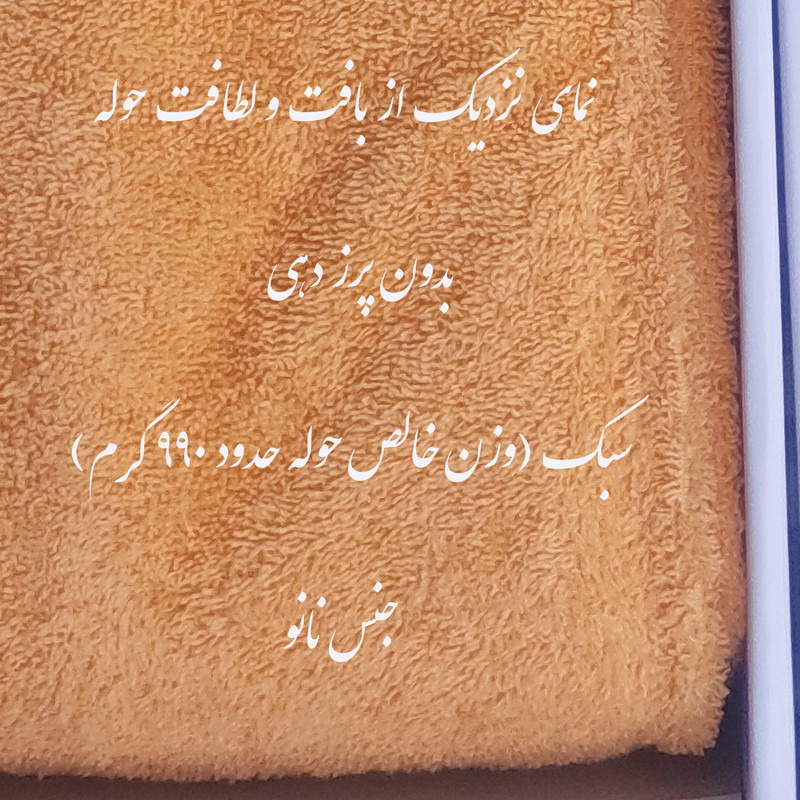 نمای نزدیک از بافت و لطافت حوله
بدون پرز دهی
سبک (وزن خالص حوله حدود ۹۹۰ گرم)
جنس نانو